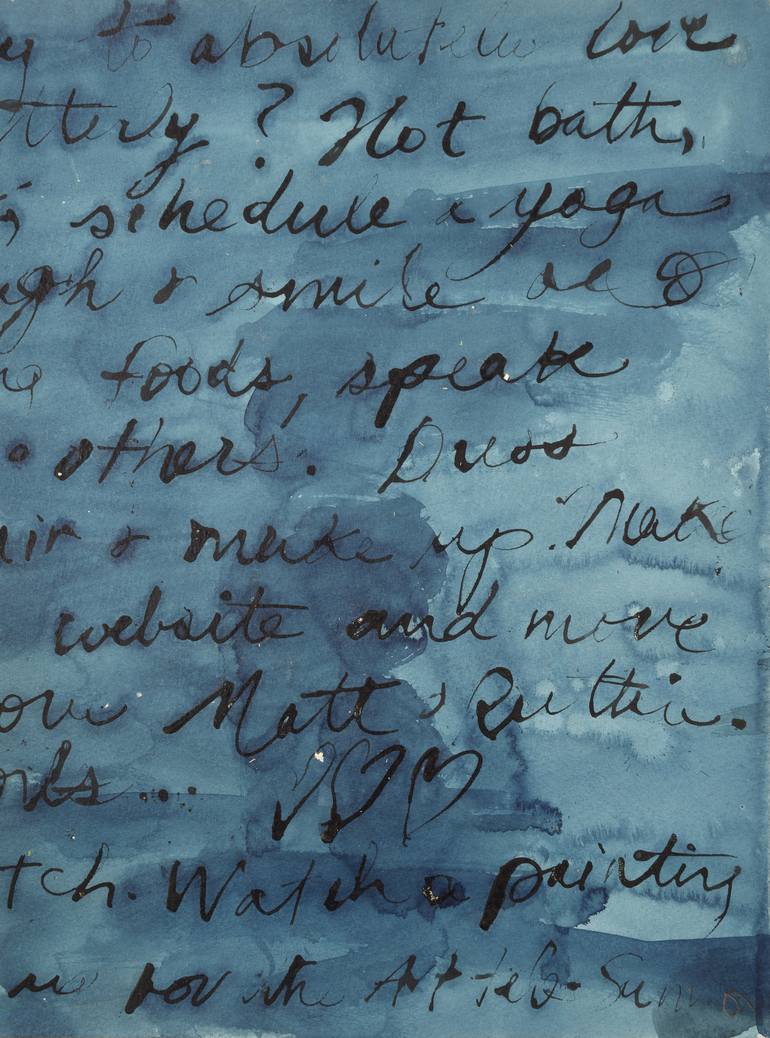 to absolutely love
? Hot bath,
schedule a yoga
& smile
foods, speak
others. Dress
& make up. Make
website and move
Matt & Ruthie.
...
tch. Watch a painting
for the Art